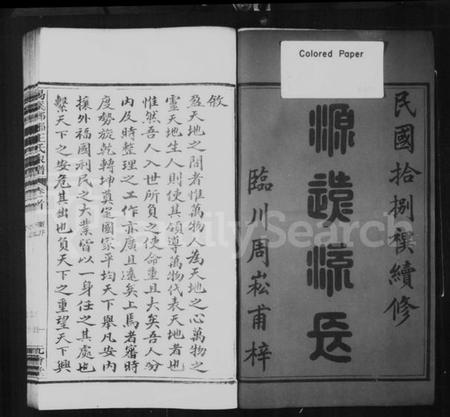 Colored Paper
民國拾捌禩續修
源遠流長
臨川周崧甫梓
敘
盈天地之間者惟萬物人為天地之心萬物之
靈天地生人則使其領導萬物代表天地者也
惟然吾人入世所負之使命重且大矣吾人分
內及時整理之工作亦廣且遠矣上焉者審時
度勢旋乾轉坤奠定國家平均天下舉凡安內
攘外福國利民之大業皆以一身任之其處也
繫天下之安危其出也負天下之重望天下興
FamilySearch